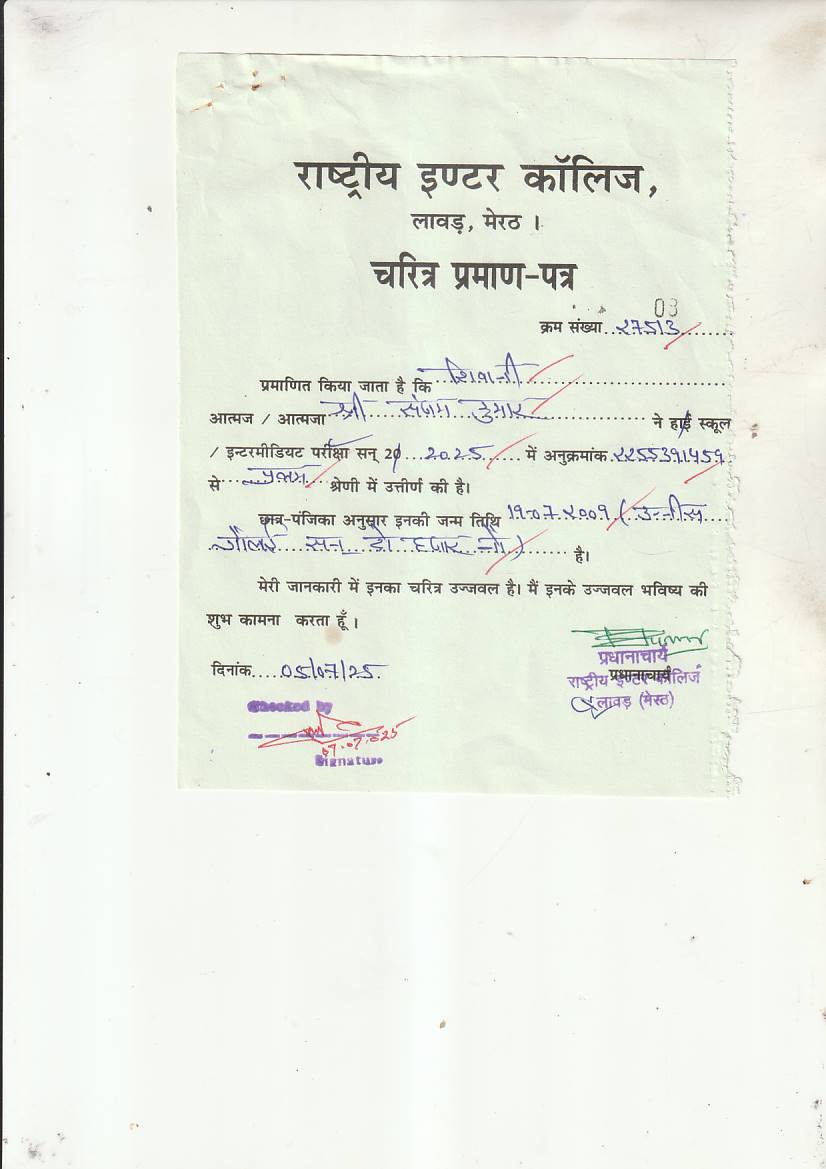 राष्ट्रीय इण्टर कॉलिज,
लावड़, मेरठ ।
चरित्र प्रमाण-पत्र
03
क्रम संख्या २7513
प्रमाणित किया जाता है कि शिवानी
आत्मज / आत्मजा श्री संजय कुमार ने हाई स्कूल
/ इन्टरमीडियट परीक्षा सन् 20 2025 में अनुक्रमांक
से प्रथम श्रेणी में उत्तीर्ण की है।
छात्र-पंजिका अनुसार इनकी जन्म तिथि 19.07.2009 (उन्नीस
जौलाई सन् दो हजार नौ) है।
मेरी जानकारी में इनका चरित्र उज्जवल है। मैं इनके उज्जवल भविष्य की
शुभ कामना करता हूँ ।
दिनांक 05/07/25
प्रधानाचार्य
प्रधानाचार्य
राष्ट्रीय इण्टर कॉलिज
लावड़ (मेरठ)
Checked by
Signature